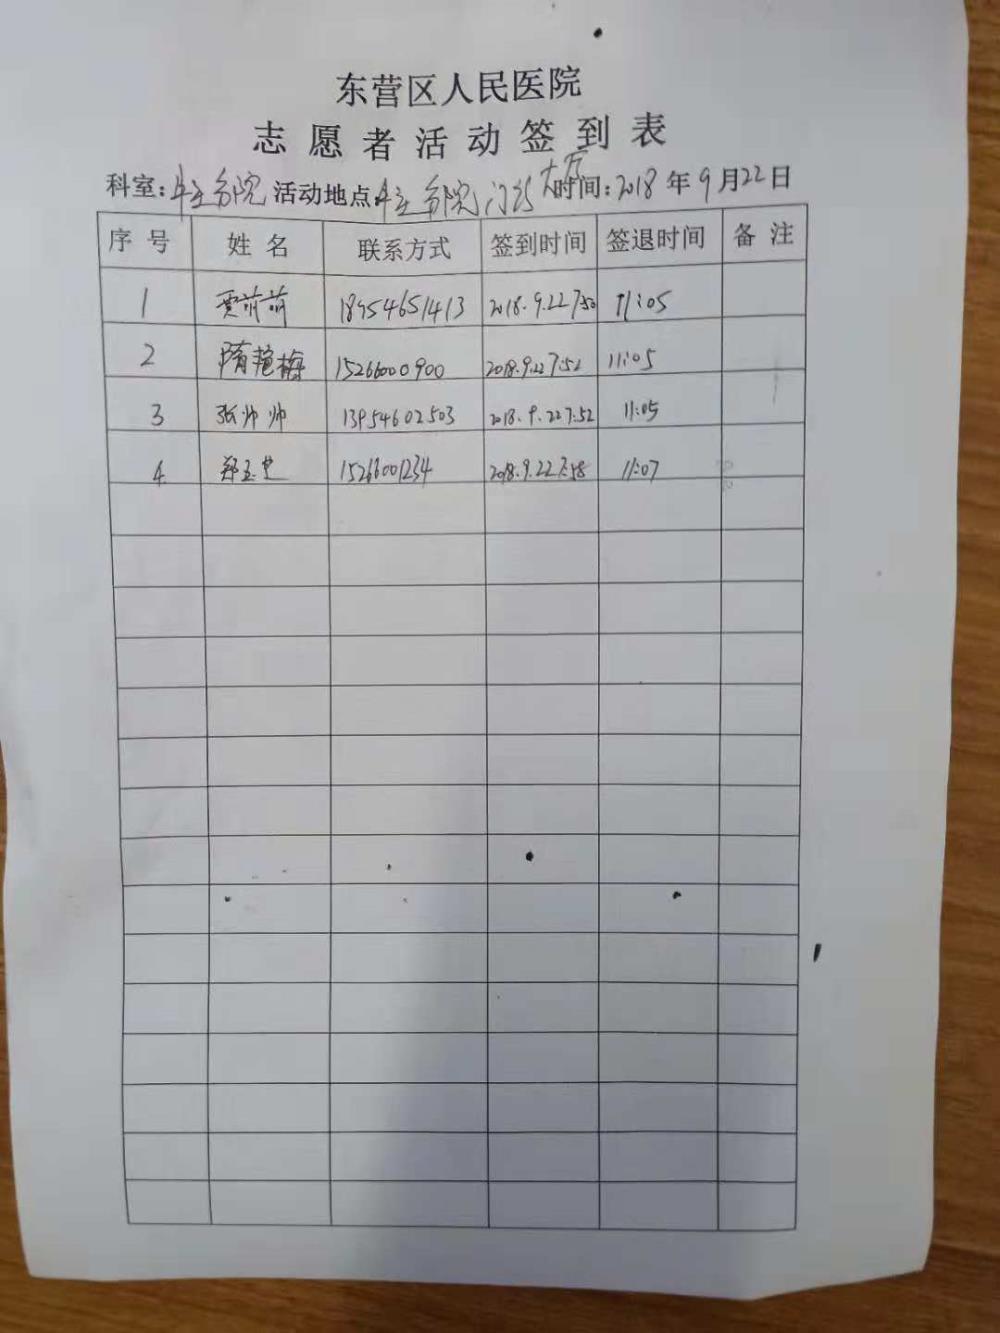 东营区人民医院
志愿者活动签到表
科室: 分院 活动地点: 分院门诊大厅 时间: 2018年9月22日
序号 姓名 联系方式 签到时间 签退时间 备注
1 贾萌萌 18954651413 2018.9.22 7:50 11:05
2 隋艳梅 15266000900 2018.9.22 7:52 11:05
3 张帅帅 13954602503 2018.9.22 7:52 11:05
4 郑玉 15266001234 2018.9.22 7:58 11:07